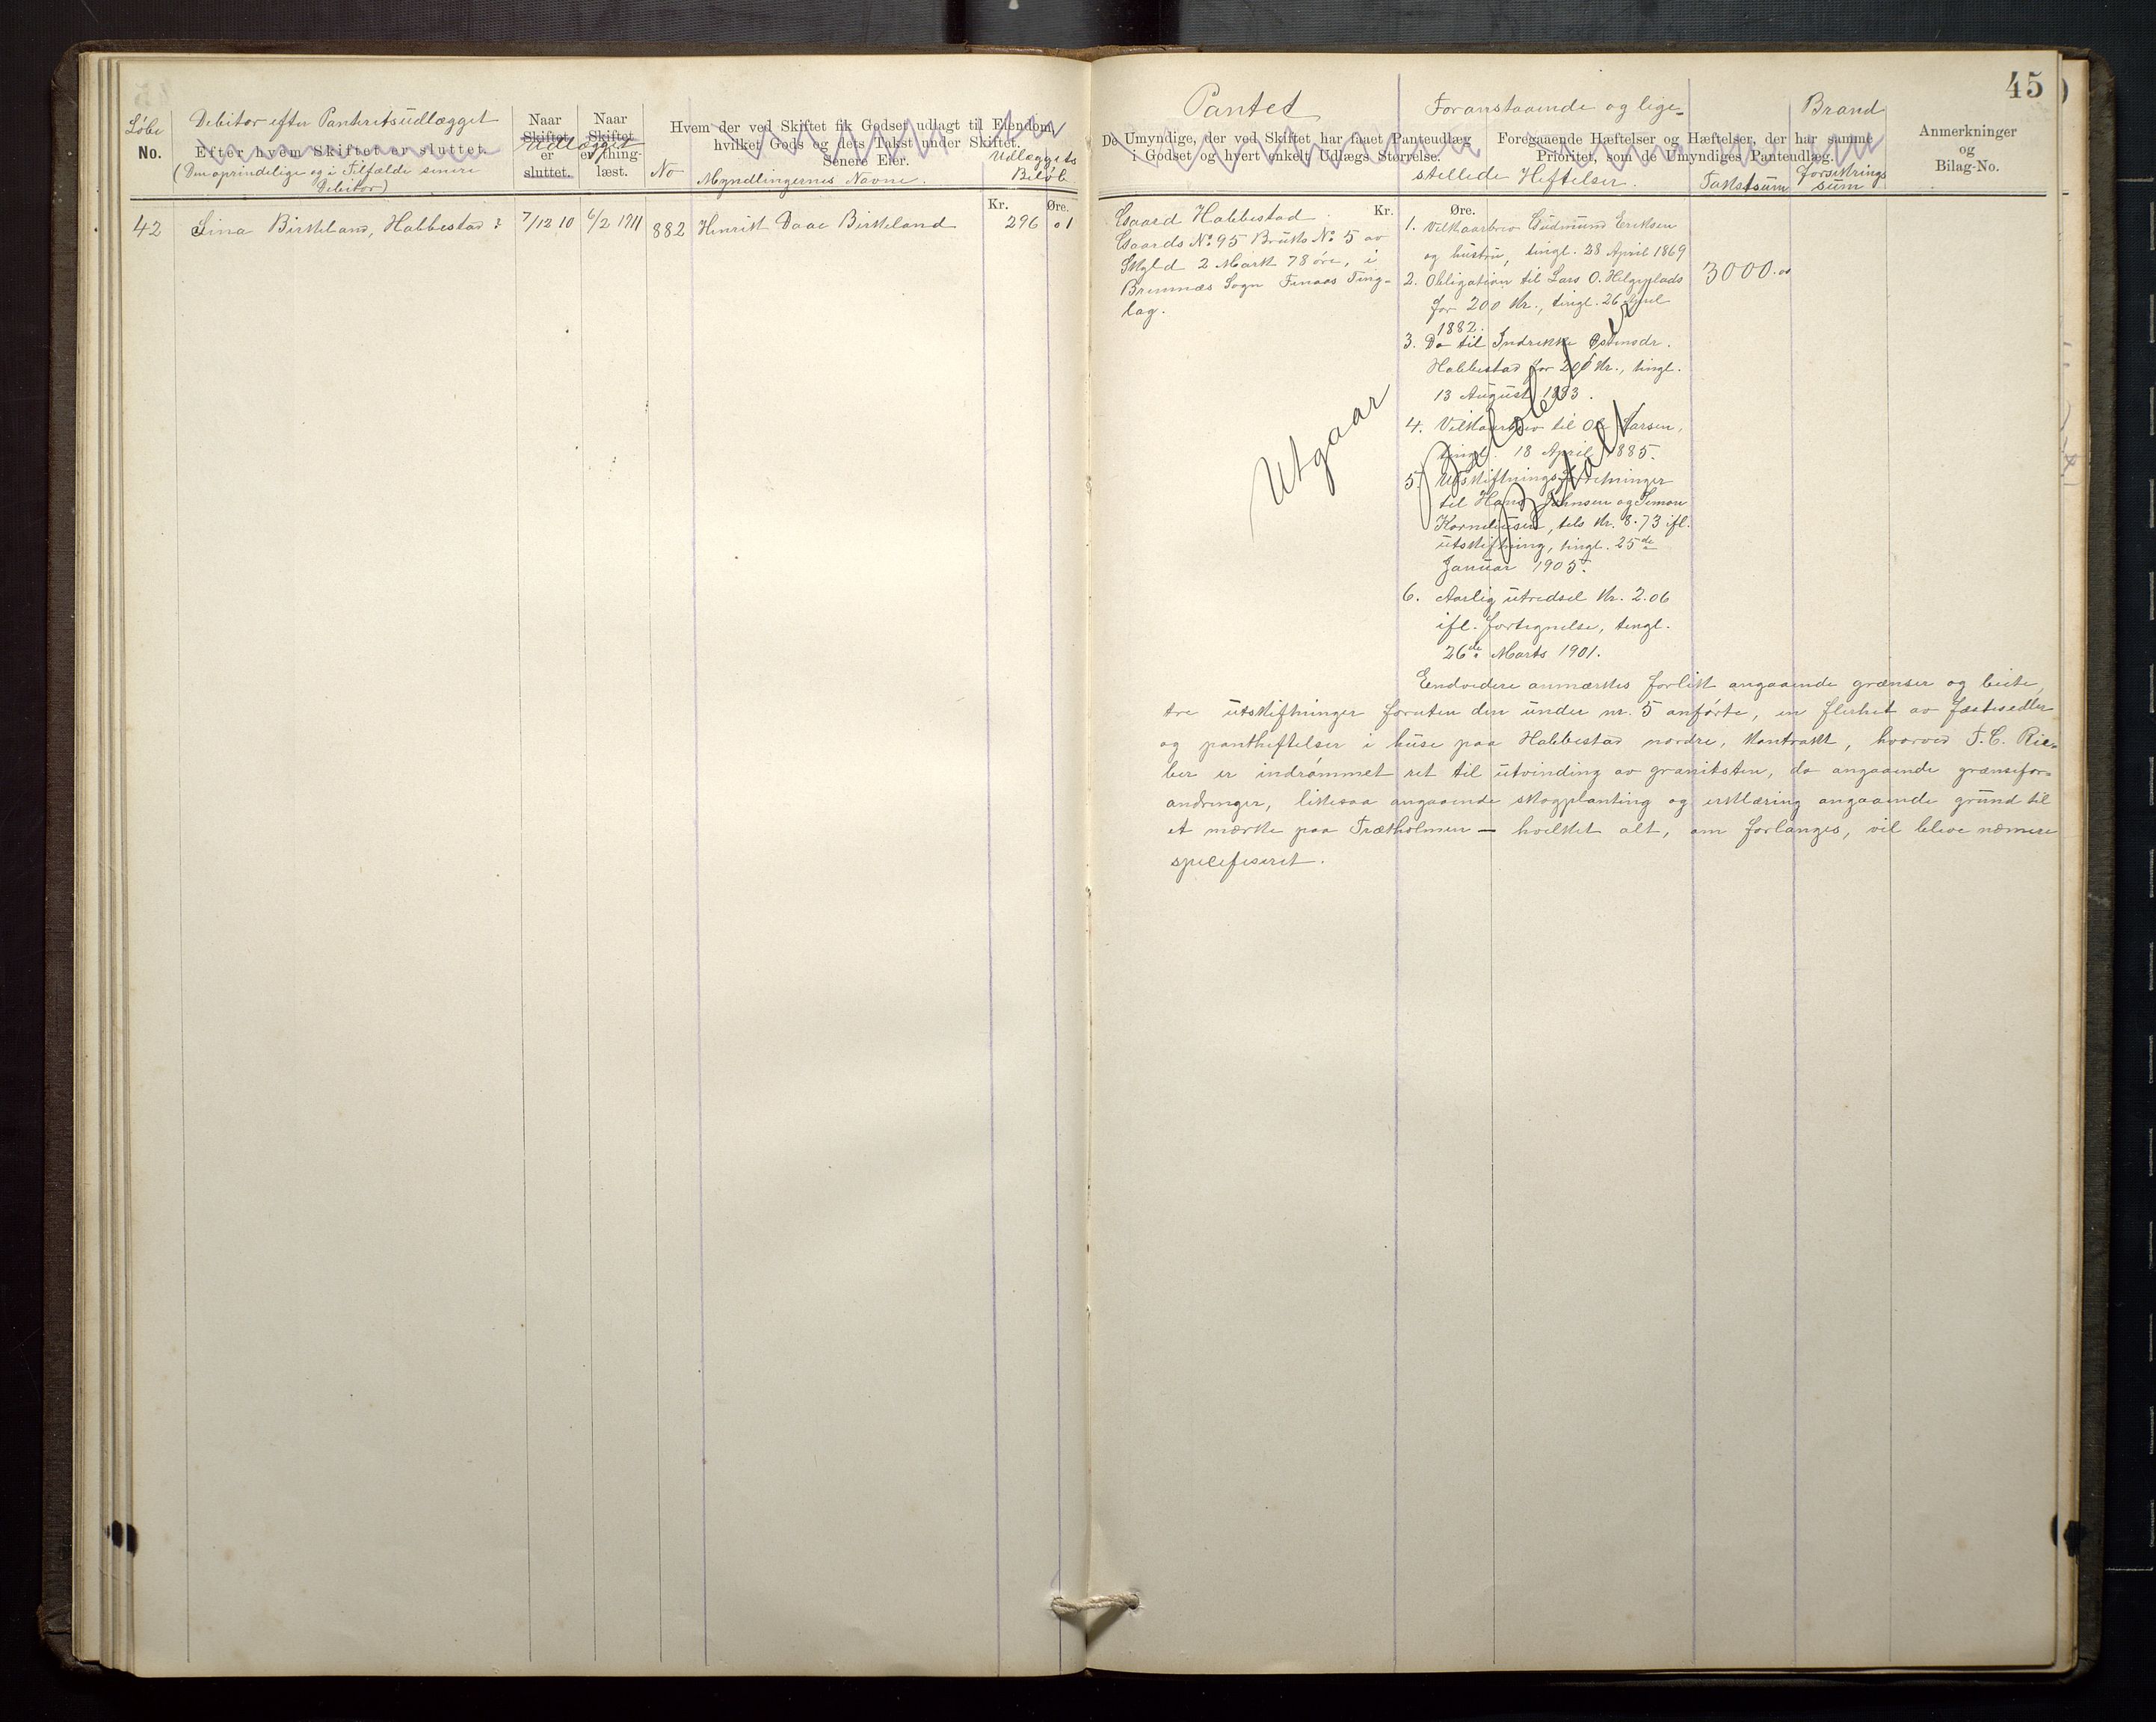 45
Løbe
No.
Debitor efter Panteretsudlægget
Efter hvem Skiftet er sluttet.
(Den oprindelige og i Tilfælde senere
Debitor)
Naar
Skiftet
Udlægget
er
sluttet.
Naar
Skiftet
er thing-
læst.
No
Hvem der ved Skiftet fik Godset udlagt til Eiendom,
hvilket Gods og dets Takst under Skiftet.
Senere Eier.
Myndlingernes Navne.
Udlæggets
Beløb
Kr. Øre.
42 Lina Birkeland, Habbestad: 7/12 10 6/2 1911 882 Henrik Daae Birkeland 296 01
Pantet
De Umyndige, der ved Skiftet har faaet Panteudlæg
i Godset og hvert enkelt Udlægs Størrelse.
Foranstaaende og lige-
Foregaaende Hæftelser og Hæftelser, der har samme
Prioritet, som de Umyndiges Panteudlæg.
stillede Heftelser.
Takstsum
Brand
forsikrings
sum
Anmerkninger
og
Bilag-No.
Kr. Øre.
Gaard Habbestad
Gaards No. 95 Bruks No. 5 av
Skyld 2 Mark 78 øre, i
Bremnæs Sogn Finaas Ting-
lag.
Utgaar
1. Vilkaarbrev Gudmund Eriksen
og hustru, tingl. 28 April 1869
2. Obligation til Lars O. Helgeplads
for 200 Kr., tingl. 26 April
1882.
3. Do til Indrikke Østensdr.
Habbestad for 200 Kr., tingl.
13 August 1883.
4. Vilkaarbrev til Ole Larsen,
tingl. 18 April 1885.
5. Utskiftnings
til Hans Johnsen og Simon
Korneliusen, tils Kr. 8.73 ifl.
utskiftning, tingl. 25de
Januar 1905.
6. Aarlig utredsel Kr. 2.06
ifl. fortegnelse, tingl.
26de Marts 1901.
Betalt
3000.00
Endvidere anmærkes forlik angaaende grænser og beite,
tre utskiftninger foruten den under nr. 5 anførte, en flerhet av fæstesedler
og pantheftelser i huse paa Habbestad nordre, kontrakt, hvorved T. C. Rie-
ber er indrømmet ret til utvinding av granitsten, do angaaende grænsefor-
andringer, likesaa angaaende skogplanting og erklæring angaaende grund til
et mærke paa Trætholmen – hvilket alt, om forlanges, vil bleve nærmere
spesifiseret.